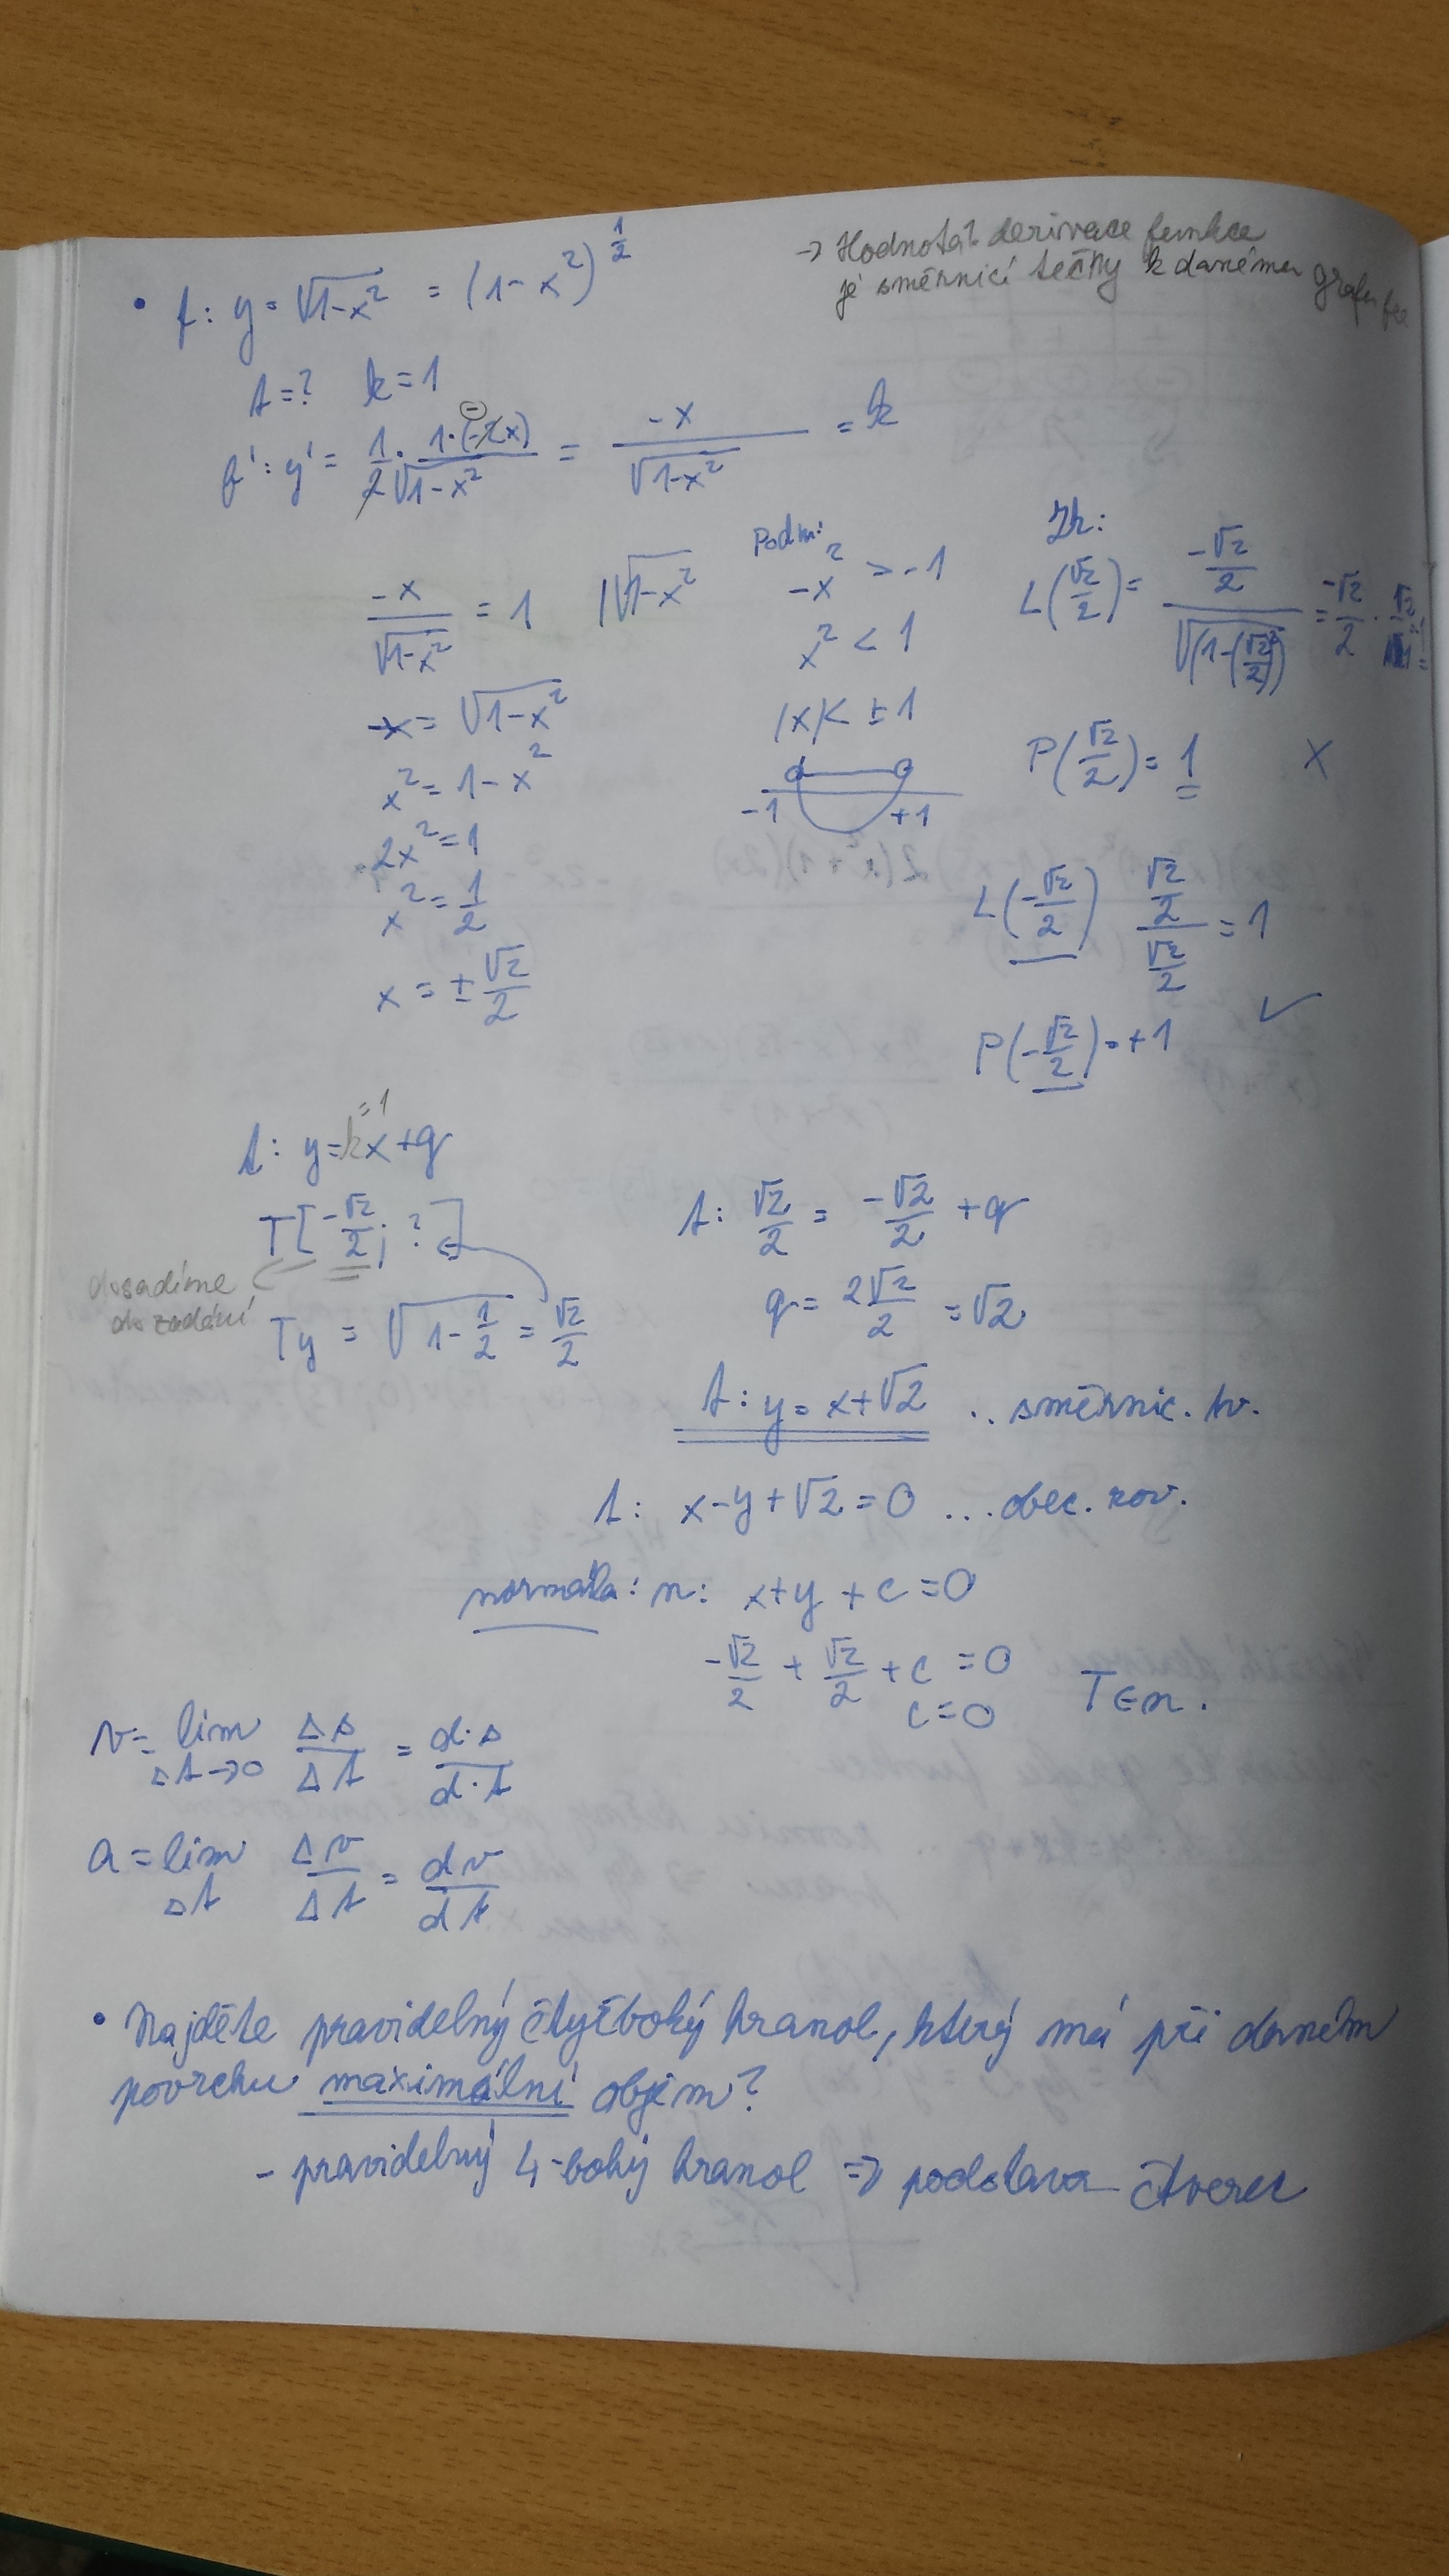 → Hodnota 1. derivace funkce
je směrnicí tečny k danému grafu fce
• f: y = √(1-x²) = (1-x²)^(1/2)
t=? k=1
f': y' = 1/2 · 1·(-2x)/√(1-x²) = -x/√(1-x²) = k
-x/√(1-x²) = 1 |√(1-x²)
-x = √(1-x²)
x² = 1-x²
2x² = 1
x² = 1/2
x = ± √2/2
Podm:
-x² > -1
x² < 1
|x| < ±1
-1 +1
Zk:
L(√2/2) = (-√2/2)/√(1-(√2/2)²) = -√2/2 ·
P(√2/2) = 1 X
L(-√2/2) (√2/2)/(√2/2) = 1
P(-√2/2) = +1 ✓
=1
t: y = kx + q
T[-√2/2; ?]
dosadíme
do zadání
Ty = √(1-1/2) = √2/2
t: √2/2 = -√2/2 + q
q = 2√2/2 = √2
t: y = x+√2 .. směrnic. tv.
t: x-y+√2 = 0 ... obec. rov.
normála: n: x+y+c = 0
-√2/2 + √2/2 + c = 0
c = 0 T∈n.
v = lim Δt→0 Δs/Δt = d·s/d·t
a = lim Δt Δv/Δt = dv/dt
• Najděte pravidelný čtyřboký hranol, který má při daném
povrchu maximální objem?
- pravidelný 4-boký hranol ⇒ podstava čtverec